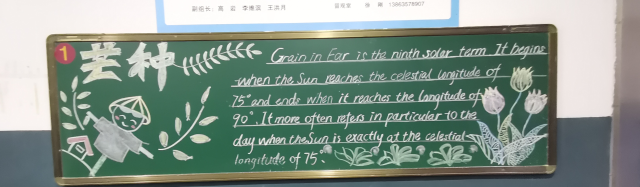 副组长：高 岩 李维滨 王洪月
1
芒种
Grain in Ear is the ninth solar term It begins
when the Sun reaches the celestial longitude of
75° and ends when it reaches the longitude of
90°. It more often refers in particular to the
day when the Sun is exactly at the celestial
longitude of 75°.